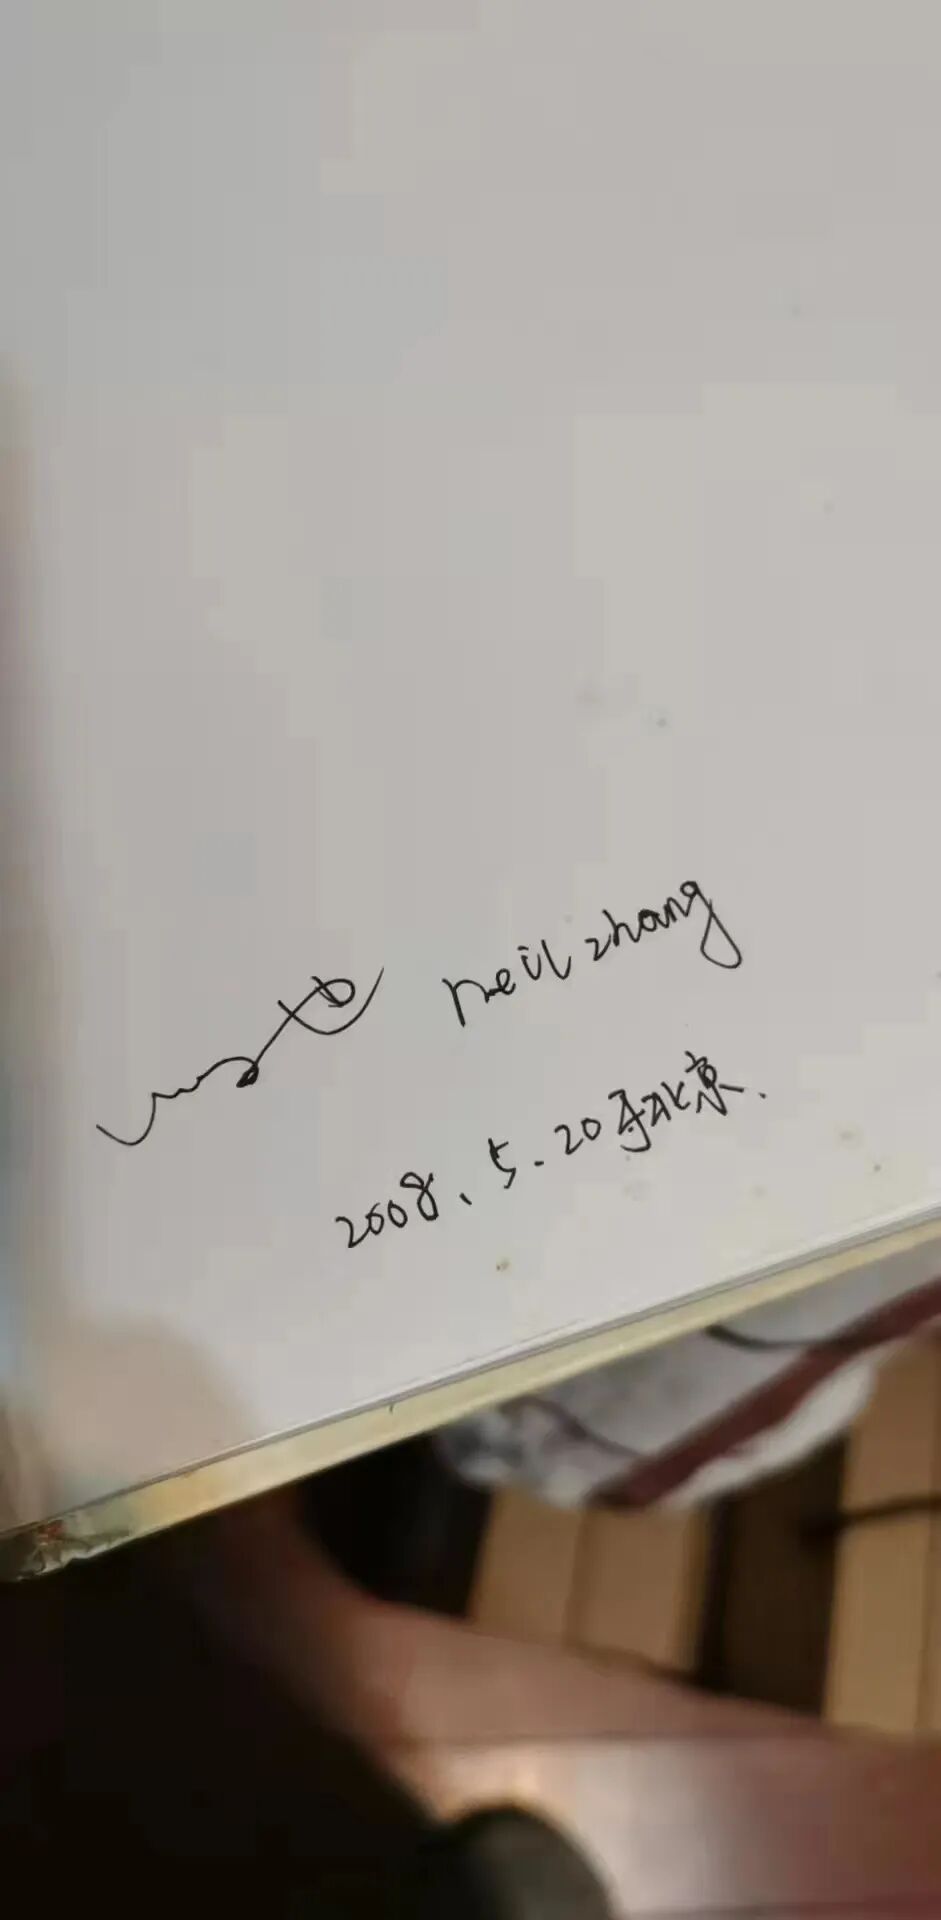 neil zhang
2008、5.20于北京.